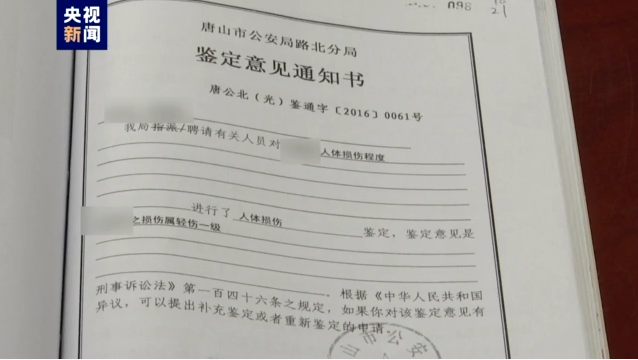 央视
新闻
098
21
唐山市公安局路北分局
鉴定意见通知书
唐公北（光）鉴通字〔2016〕0061号
我局指派/聘请有关人员对 人体损伤程度
进行了 人体损伤 鉴定，鉴定意见是
之损伤属轻伤一级
。根据《中华人民共和国
刑事诉讼法》第一百四十六条之规定，如果你对该鉴定意见有
异议，可以提出补充鉴定或者重新鉴定的申请。
山市公安